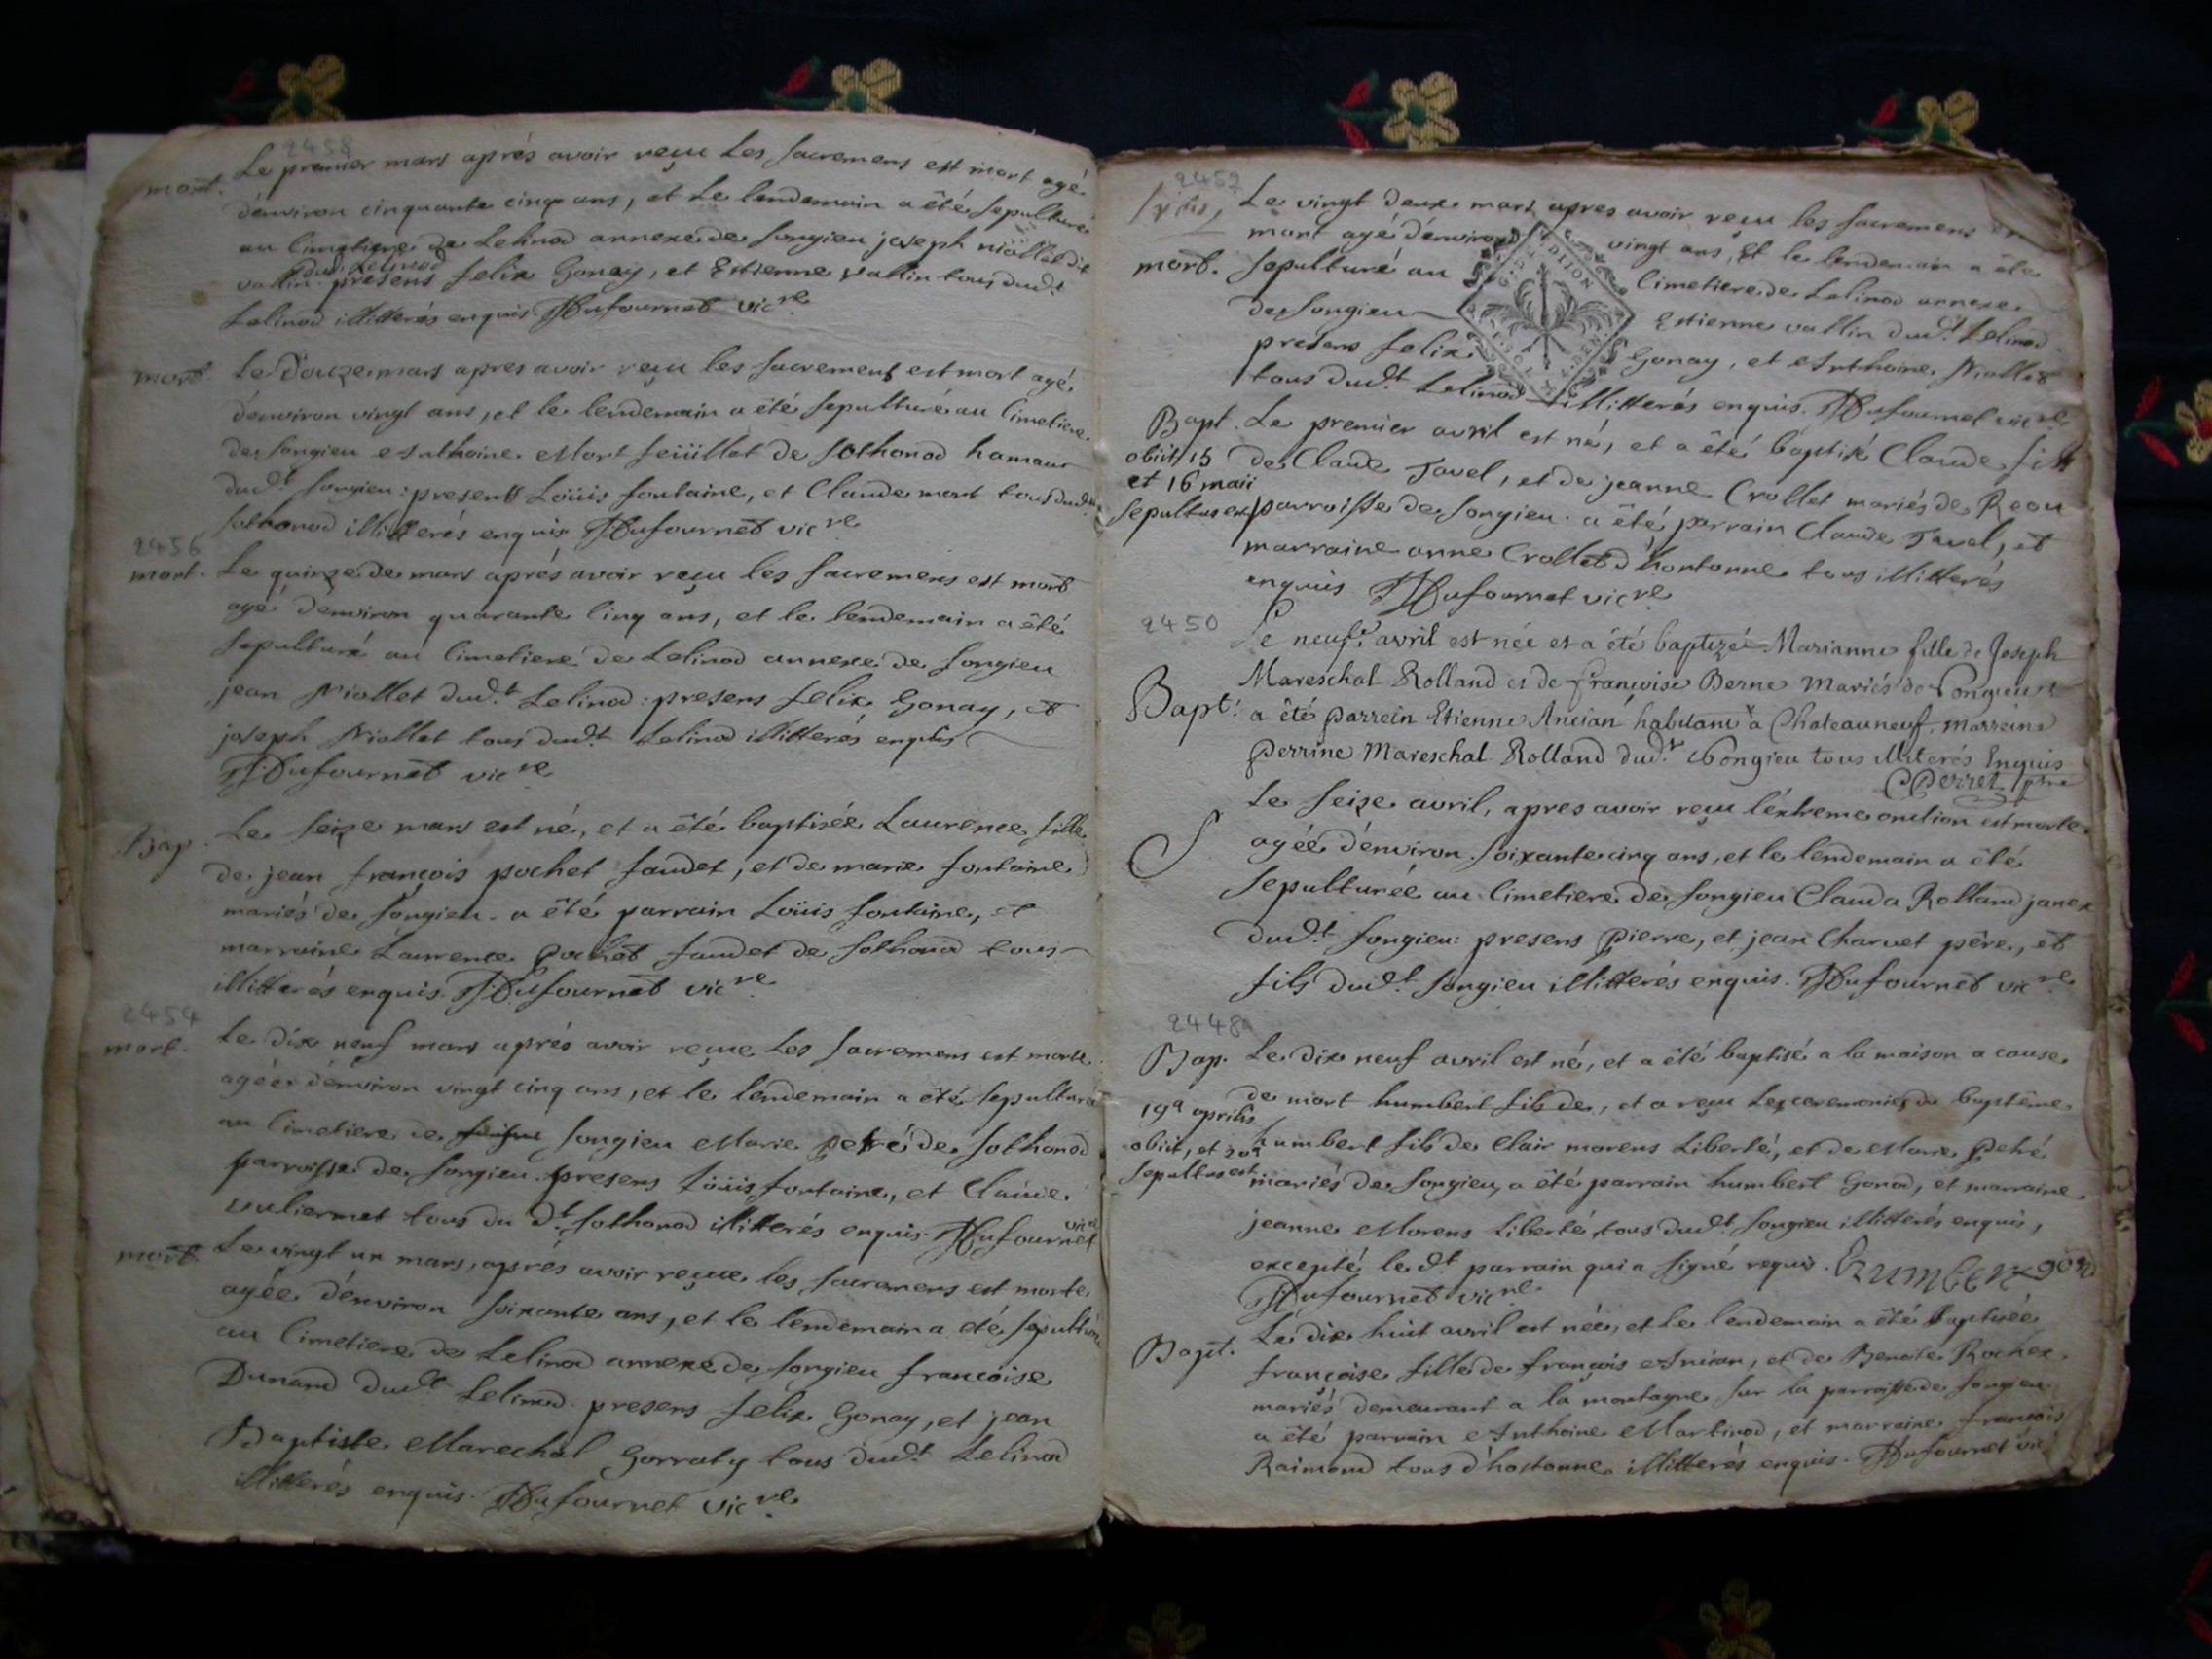 2458
mort. Le premier mars aprés avoir reçu les sacremens est mort agé
d'environ cinquante cinq ans, et le lendemain a été sepulturé
au cimetiere de Lelinod annexe de songieu joseph niollet dit
dud. Lelinod
vallin presens felix Gonay, et Estienne vallin tous dud.t
Lelinod illitterés enquis Dufournet vic.re
mort Le douze mars apres avoir reçu les sacremens est mort agé
d'environ vingt ans, et le lendemain a été sepulturé au cimetiere
de songieu Anthoine Mort feüillet de sothonod hameau
dud.t songieu: presents Loüis fontaine, et Claude mort tous dud.
sothonod illitterés enquis Dufournet vic.re
2456
mort. Le quinze de mars aprés avoir reçu les sacremens est mort
agé d'environ quarante cinq ans, et le lendemain a été
sepulturé au cimetiere de Lelinod annexe de songieu
jean Niollet dud.t Lelinod: presens felix Gonay, et
joseph Niollet tous dud.t Lelinod illitterés enquis
Dufournet vic.re
Bap. Le seize mars est né, et a été baptisée Laurence fille
de jean françois pochet faudet, et de marie fontaine
mariés de songieu. a été parrain Loüis fontaine, et
marraine Laurence pochet faudet de sothonod tous
illitterés enquis. Dufournet vic.re
2454
mort. Le dix neuf mars aprés avoir reçue les sacremens est morte
agée d'environ vingt cinq ans, et le lendemain a été sepulturé
au cimetiere de songieu Marie petré de sothonod
parroisse de songieu. presens Loüis fontaine, et Claude
vuliermet tous du d.t sothonod illitterés enquis. Dufournet vic.
mort. Le vingt un mars, aprés avoir reçue les sacremens est morte
agée d'environ soixante ans, et le lendemain a été sepulturé
au cimetiere de Lelinod annexe de songieu françoise
Dunand dud.t Lelinod. presens felix Gonay, et jean
Baptiste Marechal Gorraty tous dud.t Lelinod
illitterés enquis. Dufournet vic.re
2452
Le vingt deux mars apres avoir reçu les sacremens
mort agé d'environ vingt ans, Et le lendemain a été
mort. sepulturé au Cimetiere de Lelinod annexe
de songieu Estienne vallin dud.t Lelinod
G. DE DIJON
presens felix Gonay, et Anthoine Niollet
tous dud.t Lelinod illitterés enquis. Dufournet vic.re
Bapt. Le premier avril est né, et a été baptisé Claude fils
obiit 15 de Claude Tavel, et de jeanne Crollet mariés de Reou
et 16 maii
sepultus est parroisse de songieu. a été parrain Claude Tavel, et
marraine anne Crollet d'hontonne tous illitterés
enquis Dufournet vic.re
2450
Le neuf.e avril est née et a été baptizée Marianne fille de Joseph
Mareschal Rolland et de françoise Berne Mariés de Songieu
Bapt: a été parrein Etienne Ancian habitant a Chateauneuf. Marreine
Perrine Mareschal Rolland dud.t Songieu tous illiterés Enquis
Perret ptre
S Le seize avril, apres avoir reçu l'extreme onction est morte
agée d'environ soixante cinq ans, et le lendemain a été
sepulturée au cimetiere de songieu Clauda Rolland janex
dud.t songieu: presens Pierre, et jean Charvet père, et
fils dud.t songieu illitterés enquis. Dufournet vic.re
2448
Bap. Le dix neuf avril est né, et a été baptisé a la maison a cause
de mort humbert fils de, et a reçu les ceremonies du baptême
19a aprilis
obiit, et 20a humbert fils de Clair morens Liberté, et de Marie Pehé
sepultus est mariés de songieu, a été parrain humbert Gonod, et marraine
jeanne Morens Liberté tous dud.t songieu illitterés enquis,
excepté le d.t parrain qui a signé requis. humbert gon
Dufournet vic.re
Bapt. Le dix huit avril est née, et le lendemain a été baptisée
françoise fille de françois Ancian, et de Benoite Rochex
mariés demeurant a la montagne sur la parroisse de songieu
a été parrain Anthoine Martinod, et marraine françois
Raimond tous d'hostonne illitterés enquis. Dufournet vic